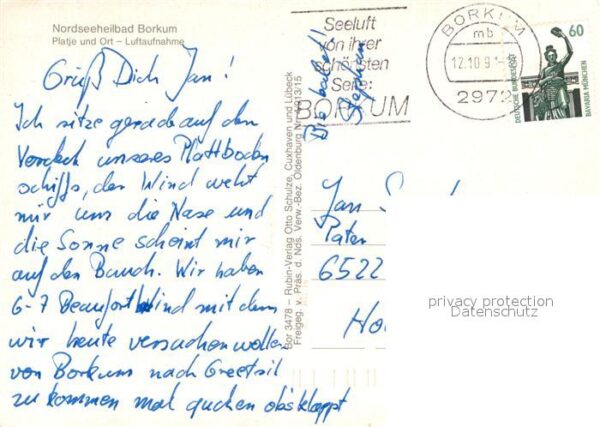 Nordseeheilbad Borkum
Platje und Ort – Luftaufnahme
Grüß Dich Jan!
Ich sitze gerade auf den
Verdeck unseres Plattboden
schiffs, der Wind weht
mir um die Nase und
die Sonne scheint mir
auf den Bauch. Wir haben
6-7 Beaufort Wind mit dem
wir heute versuchen wollen
von Borkum nach Greetsil
zu kommen mal guchen obs klappt
Bis bald!
Stephan
Bor 3478 – Rubin-Verlag Otto Schulze, Cuxhaven und Lübeck
Freigeg. v. Präs. d. Nds. Verw.-Bez. Oldenburg Nr.
Seeluft
von ihrer
schönsten
Seite:
BORKUM
BORKUM
mb
12.10.9
2972
60
DEUTSCHE BUNDESPOST
BAVARIA MÜNCHEN
Jan
Pater
6522
privacy protection
Datenschutz